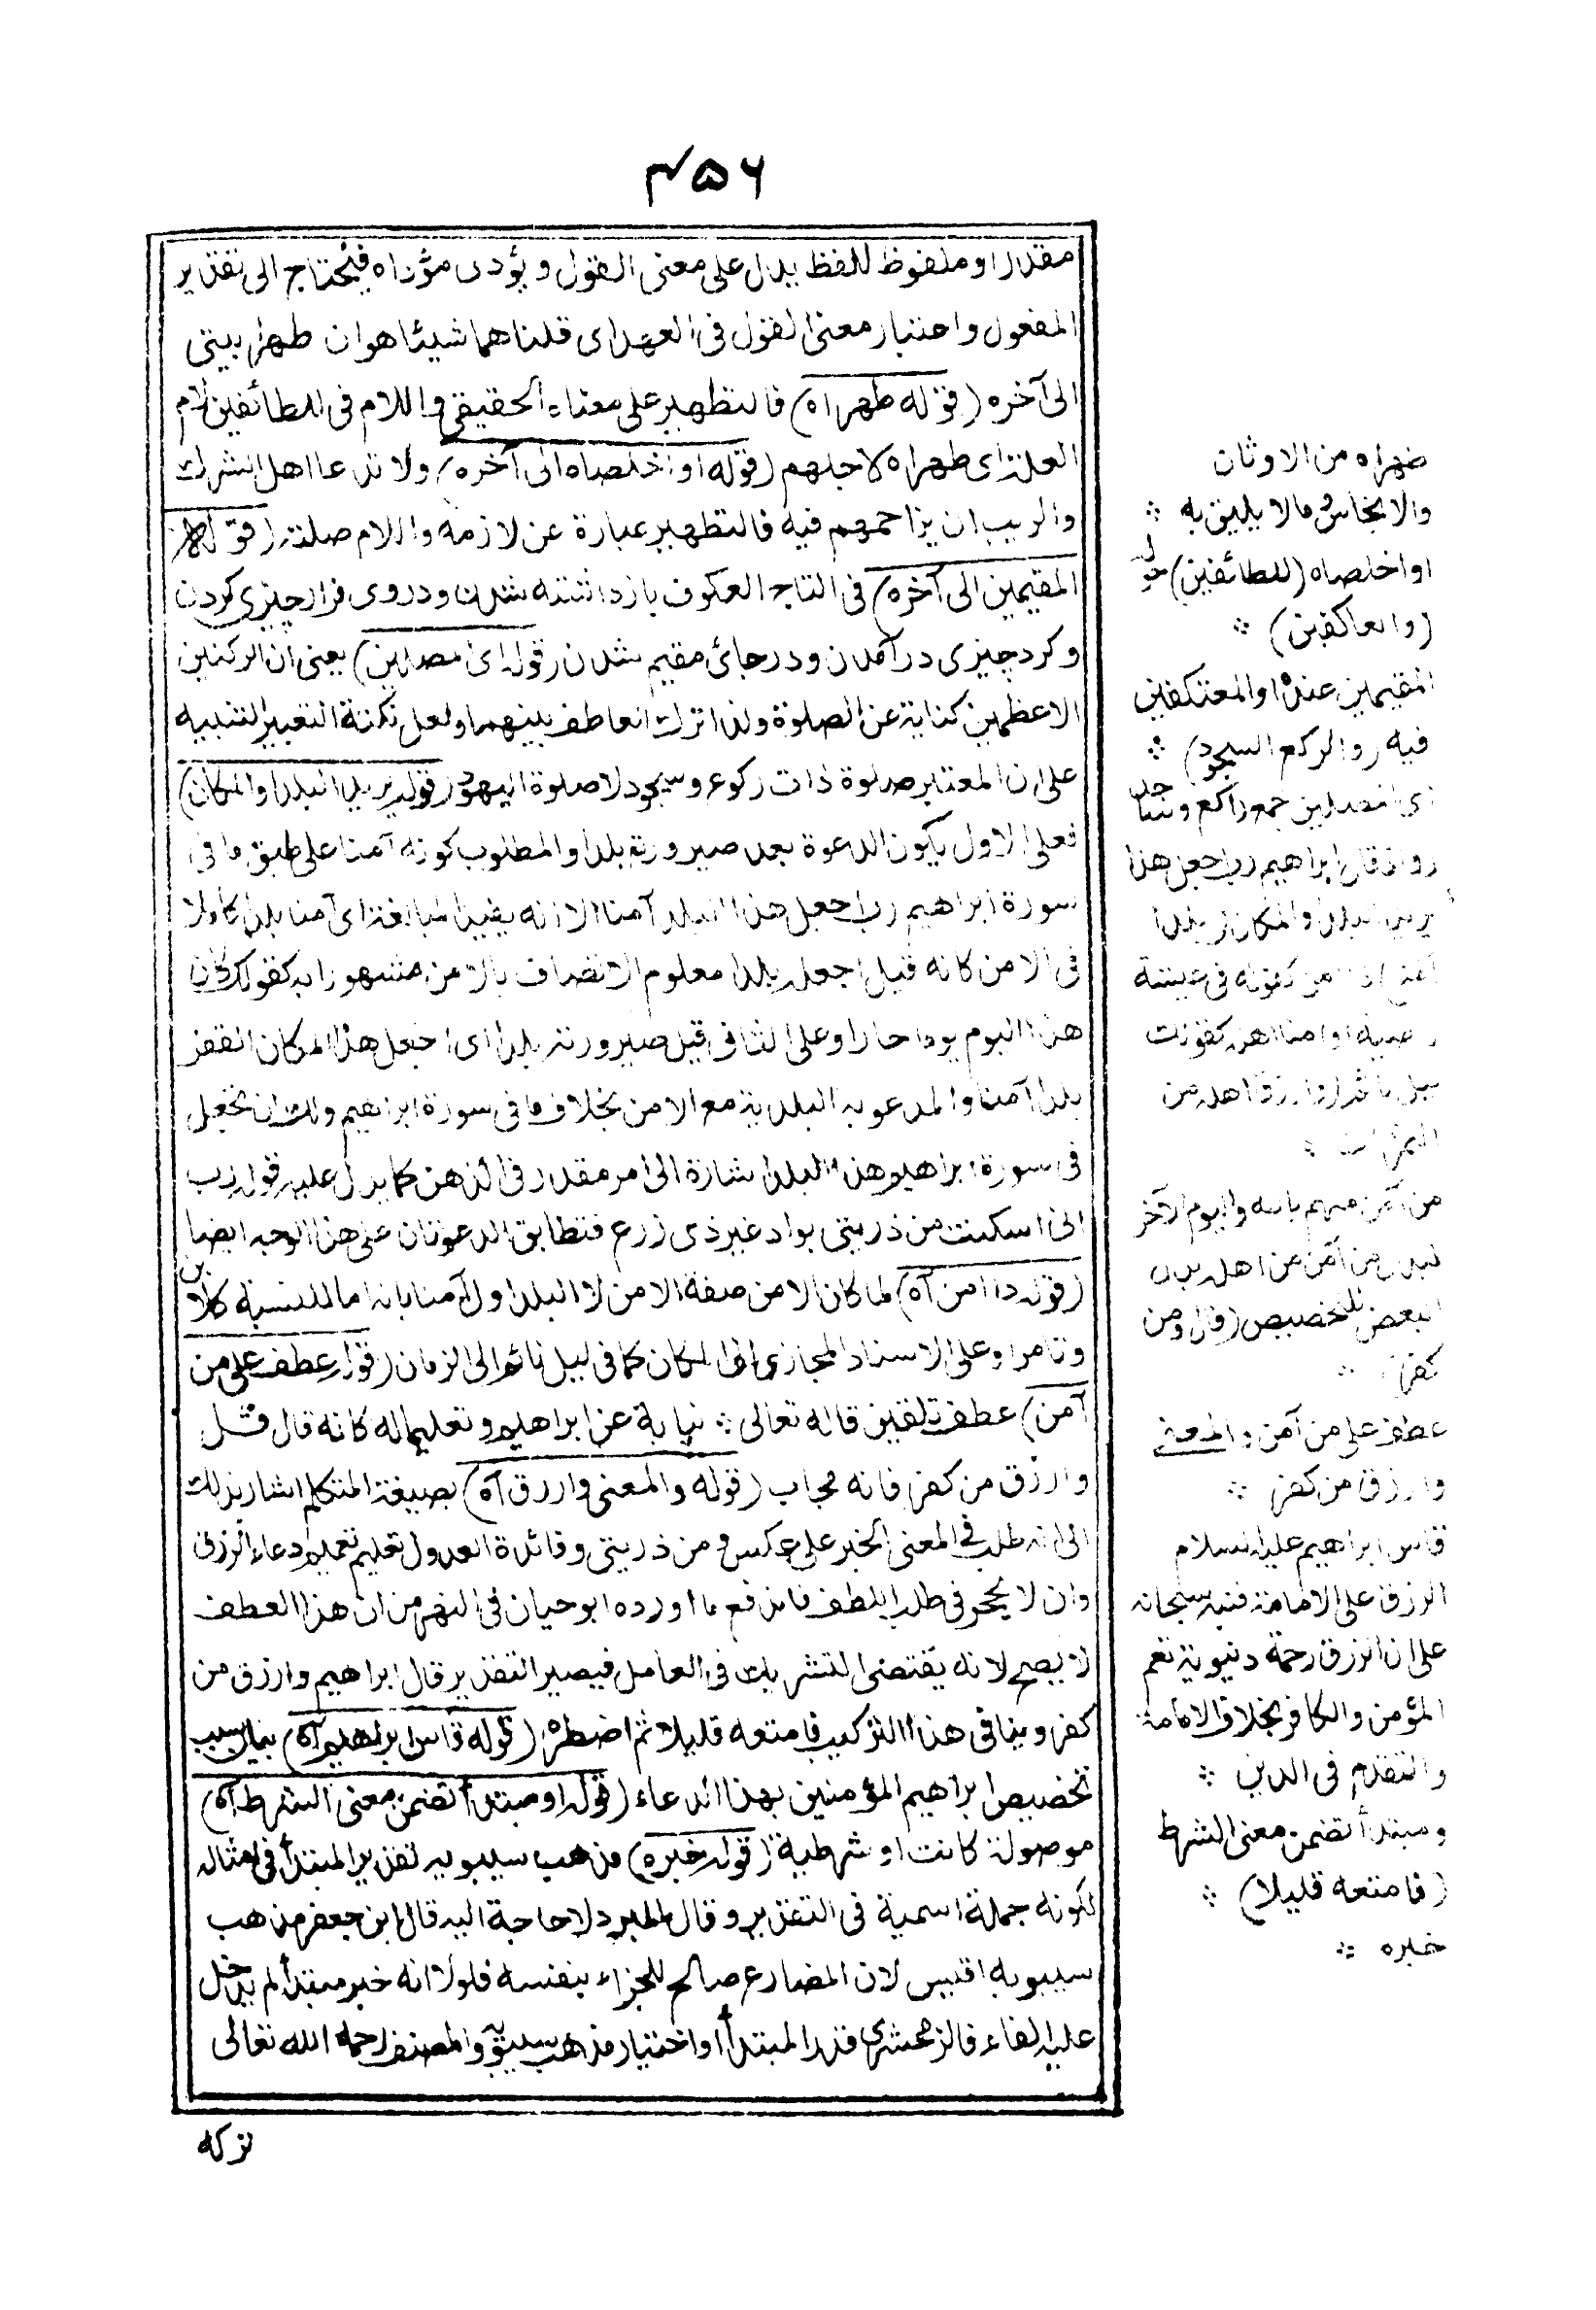 ٤٥٦
مقدرا او ملفوظ للفظ يدل على معنى القول ويؤدى مؤداه فيحتاج الى تقدير
المفعول واعتبار معنى القول فى العهد اى قلنا هما شيئا هو ان طهرا بيتى
الى آخره (قوله طهراه) فالتطهير على معناه الحقيقى واللام فى للطائفين لام
العلة اى طهراه لاجلهم (قوله او اخلصاه الى آخره) ولا تدعا اهل الشرك
والريب ان يزاحمهم فيه فالتطهير عبارة عن لازمه واللام صلته (قوله
المقيمين الى آخره) فى التاج العكوف بازداشته شدن ودروى فراچيزى كردن
وكرد چيزى در آمدن ودرجائ مقيم شدن (قوله اى مصلين) يعنى ان الركنين
الاعظمين كناية عن الصلوة ولذا ترك العاطف بينهما ولعل نكتة التعبير التنبيه
على ان المعتبر صلوة ذات ركوع وسجود لا صلوة اليهود (قوله يريد البلد او المكان)
فعلى الاول يكون الدعوة بعد صيرورته بلدا والمطلوب كونه آمنا على طبق ما فى
سورة ابراهيم رب اجعل هذا البلد آمنا الا انه يفيد المبالغة اى آمنا بلدا كاملا
فى الامن كانه قيل اجعله بلدا معلوم الاتصاف بالامن مشهورا به كقولك كان
هذا اليوم يوما حارا وعلى الثانى قبل صيرورته بلدا اى اجعل هذا المكان القفر
بلدا آمنا والمدعو به البلدية مع الامن بخلاف ما فى سورة ابراهيم ولك ان تجعل
فى سورة ابراهيم هذا البلد اشارة الى امر مقدر فى الذهن كما يدل عليه قوله رب
انى اسكنت من ذريتى بواد غير ذى زرع فتطابق الدعوتان على هذا الوجه ايضا
(قوله ذا امن آه) لما كان الامن صفة الامن لا البلد اول آمنا بانه اما للنسبة كلابن
وتامر او على الاسناد المجازى الى المكان كما فى ليل نائم الى الزمان (قوله عطف على من
آمن) عطف تلقين قاله تعالى ∴ نيابة عن ابراهيم وتعليما له كانه قال قل
وارزق من كفر فانه مجاب (قوله والمعنى وارزق آه) بصيغة المتكلم اشار بذلك
الى انه طلب فى المعنى الخبر على عكس ومن ذريتى وفائدة العدول تعليم تعميم دعاء الرزق
وان لا يحجر فى طلب اللطف فاندفع ما اورده ابو حيان فى النهر من ان هذا العطف
لا يصح لانه يقتضى التشريك فى العامل فيصير التقدير قال ابراهيم وارزق من
كفر وينافى هذا التركيب فامتعه قليلا ثم اضطره (قوله قاس ابراهيم آه) بيان سبب
تخصيص ابراهيم المؤمنين بهذا الدعاء (قوله او مبتدأ تضمن معنى الشرط آه)
موصولة كانت او شرطية (قوله خبره) مذهب سيبويه تقدير المبتدأ فى امثاله
لكونه جملة اسمية فى التقدير وقال المبرد لا حاجة اليه قال ابن جعفر مذهب
سيبويه اقيس لان المضارع صالح للجزاء بنفسه فلولا انه خبر مبتدأ لم يدخل
عليه الفاء فالزمخشرى قدر المبتدأ او اختيار مذهب سيبويه والمصنف رحمه الله تعالى
تركه
طهراه من الاوثان
والانجاس وما لا يليق به ∴
او اخلصاه (للطائفين) حوله
(والعاكفين) ∴
المقيمين عنده او المعتكفين
فيه (والركع السجود) ∴
اى المصلين جمع راكع وساجد
(واذ قال ابراهيم رب اجعل هذا
يريد البلد او المكان (بلدا
آمنا) ذا امن كقوله فى عيشة
راضية او آمنا اهله كقولك
ليل نائم (وارزق اهله من
الثمرات ∴
من آمن منهم بالله واليوم الآخر
ابدل من آمن من اهله بدل
البعض للتخصيص (قال ومن
كفر) ∴
عطف على من آمن والمعنى
وارزق من كفر ∴
قاس ابراهيم عليه السلام
الرزق على الامامة فنبه سبحانه
على ان الرزق رحمة دنيوية تعم
المؤمن والكافر بخلاف الامامة
والتقدم فى الدين ∴
ومبتدأ تضمن معنى الشرط
(فامتعه قليلا) ∴
خبره ∴